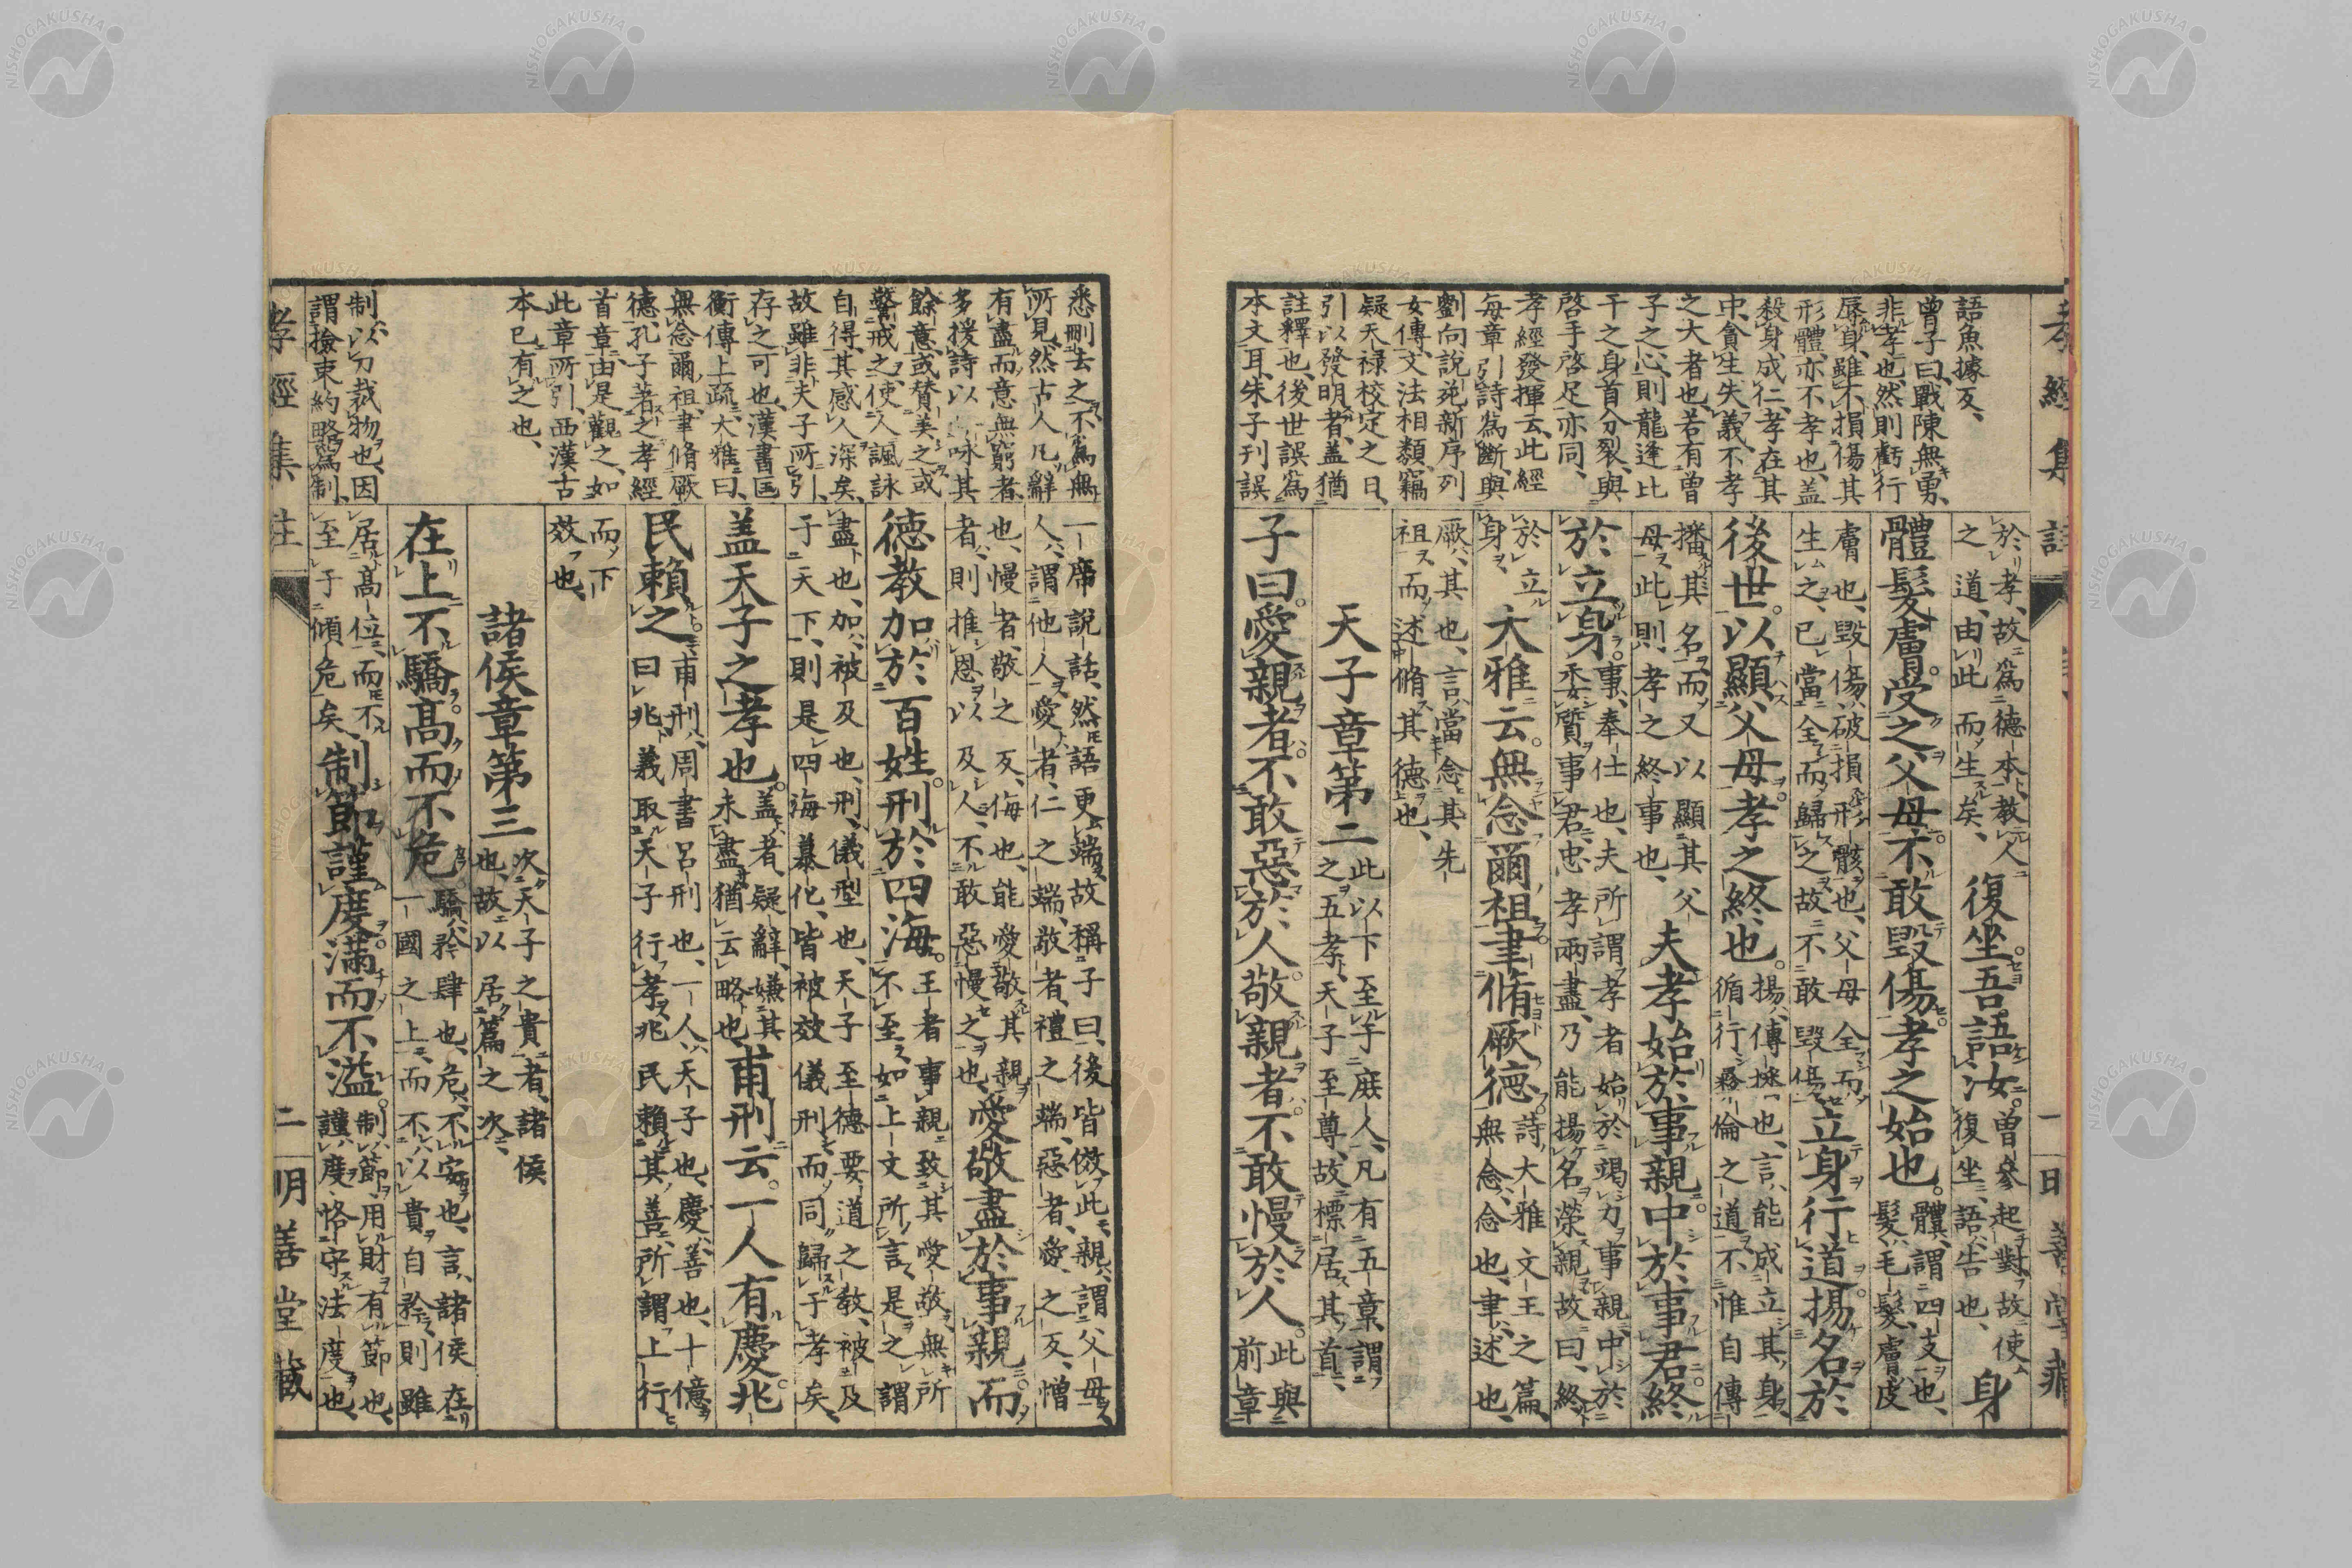 孝經集註
語魚據反、
曾子曰、戰陳無勇、
非孝也、然則虧行
辱身、雖不損傷其
形體、亦不孝也、蓋
殺身成仁、孝在其
中、貪生失義、不孝
之大者也、若有曾
子之心、則龍逢比
干之身首分裂、與
啓手啓足亦同、
孝經發揮云、此經
每章引詩爲斷、與
劉向說苑新序列
女傳、文法相類、竊
疑天祿校定之日、
引以發明者、蓋猶
註釋也、後世誤爲
本文耳、朱子刊誤
於孝、故爲德本、教人
之道、由此而生矣、
復坐。吾語汝。
曾參起對、故使
復坐、語、告也、
身
體髮膚。受之父母。不敢毀傷。孝之始也。
體、謂四支也、
髮、毛髮、膚皮
膚也、毀傷、破損形骸也、父母全而
生之、已當全而歸之、故不敢毀傷、
立身行道。揚名於
後世。以顯父母。孝之終也。
揚、傳播也、言能成立其身、
循行霧倫之道、不惟自傳
播其名、而又以顯其父
母、此則孝之終事也、
夫孝始於事親。中於事君。終
於立身。
事、奉仕也、夫所謂孝者、始於竭力事親、中於
委質事君、忠孝兩盡、乃能揚名榮親、故曰、終
於立
身、
大雅云。無念爾祖。聿脩厥德。
詩大雅文王之篇、
無念、念也、聿、述也、
厥、其也、言當念其先
祖、而述脩其德也、
天子章第二
此以下至于庶人、凡有五章、謂
之五孝、天子至尊、故標居其首、
子曰。愛親者。不敢惡於人。敬親者。不敢慢於人。
此與
前章
悉删去之、不爲無
所見、然古人凡辭
有盡而意無窮者、
多援詩以咏其
餘意、或贊美之、或
警戒之、使人諷詠
自得、其感人深矣、
故雖非夫子所引、
存之可也、漢書匡
衡傳上疏、大雅曰、
無念爾祖、聿脩厥
德、孔子著之孝經
首章、由是觀之、如
此章所引、西漢古
本已有之也、
制、以刀裁物也、因
謂撿束約略爲制、
一席說話、然語更端、故稱子曰、後皆傚此、親、謂父母、
人、謂他人、愛者、仁之端、敬者、禮之端、惡者、愛之反、憎
也、慢者、敬之反、侮也、能愛敬其親
者、則推恩以及人、不敢惡慢之也、
愛敬盡於事親。而
德教加於百姓。刑於四海。
王者事親、致其愛敬、無所
不至、如上文所言、是之謂
盡也、加、被及也、刑、儀型也、天子至德要道之教、被及
于天下、則是四海慕化、皆被效儀刑、而同歸于孝矣、
蓋天子之孝也。
蓋者、疑辭、嫌其
未盡、猶云略也、
甫刑云。一人有慶。兆
民賴之。
甫刑、周書呂刑也、一人、天子也、慶、善也、十億
曰兆、義取天子行孝、兆民賴其善、所謂上行
而下
效也、
諸侯章第三
次天子之貴者、諸侯
也、故以居篇之次、
在上不驕。高而不危。
驕、矜肆也、危、不安也、言諸侯在
一國之上、而不以貴自矜、則雖
居高位、而不
至于傾危矣、
制節謹度。滿而不溢。
制節、用財有節也、
謹度、恪守法度也、
孝經集註
二
明善堂藏
NISHOGAKUSHA